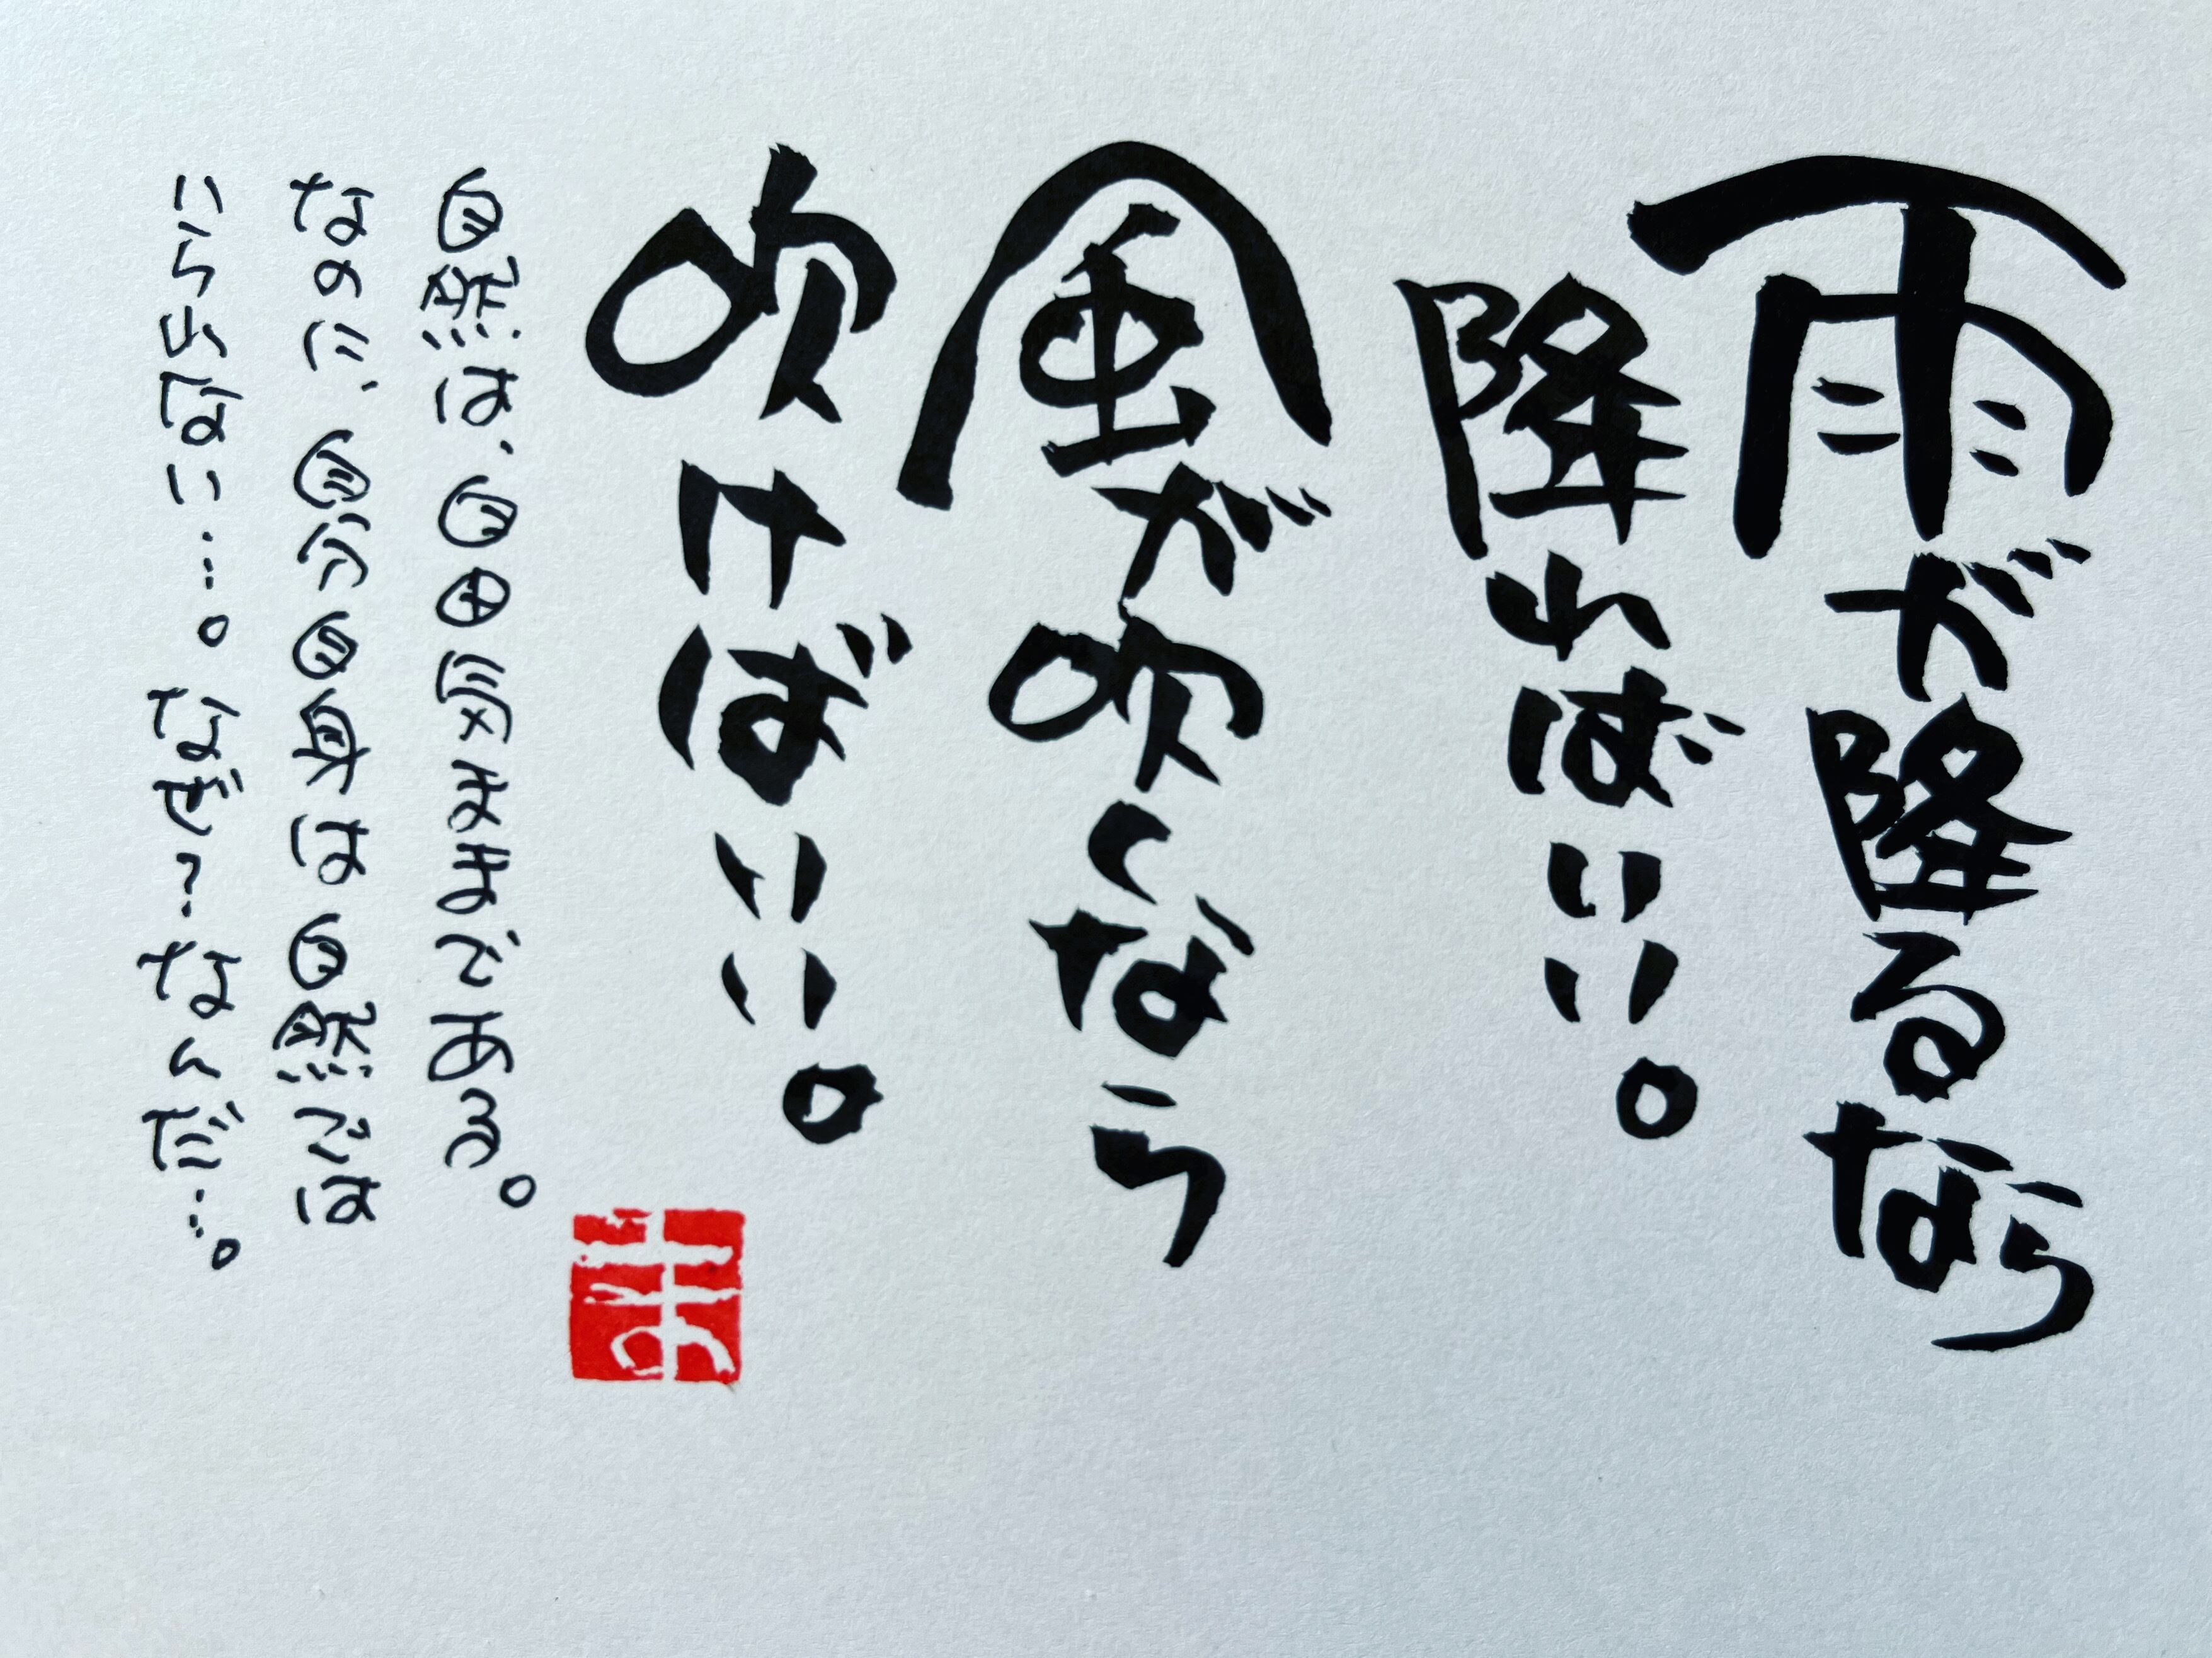 雨が降るなら
降ればいい。
風が吹くなら
吹けばいい。
自然は、自由気ままである。
なのに、自分自身は自然では
いられない…。なぜ?なんだ…。